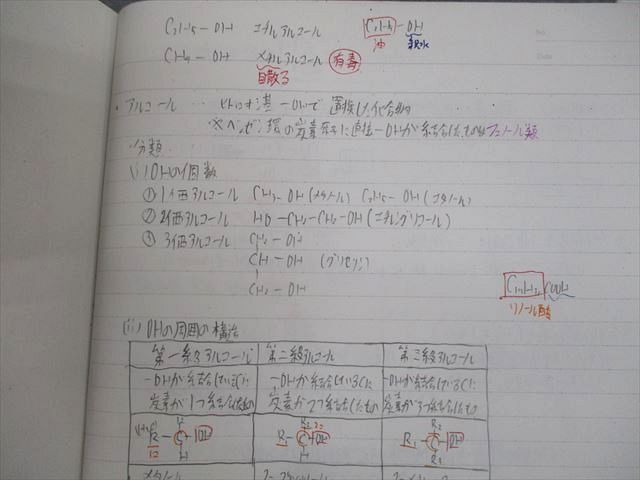 C₂H₅-OH エチルアルコール C₂H₅-OH
油 親水
CH₃-OH メチルアルコール 有毒
目散る
・アルコール … ヒドロキシ基-OHで置換した化合物
※ベンゼン環の炭素原子に直接-OHが結合したものはフェノール類
分類
(i) OHの個数
① 1価アルコール CH₃-OH (メタノール) C₂H₅-OH (エタノール)
② 2価アルコール HO-CH₂-CH₂-OH (エチレングリコール)
③ 3価アルコール CH₂-OH
CH-OH (グリセリン)
CH₂-OH
COOH
リノール酸
(ii) OHの周囲の構造
第一級アルコール 第二級アルコール 第三級アルコール
-OHが結合しているCに -OHが結合しているCに -OHが結合しているCに
炭素が1つ結合したもの 炭素が2つ結合したもの 炭素が3つ結合したもの
H R₂ R₂
R-C-OH R₁-C-OH R₁-C-OH
H H R₃
メタノール